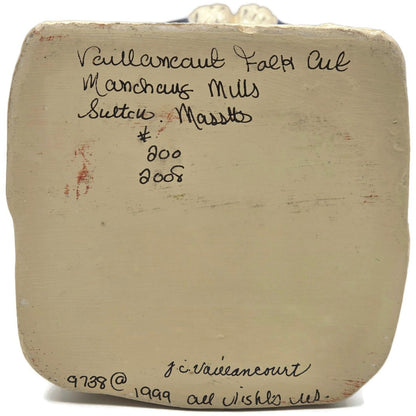 Vaillancourt Folk Art
Manchaug Mills
Sutton Masstts
#
200
2008
J.C. Vaillancourt
9738@ 1999 all rights res.